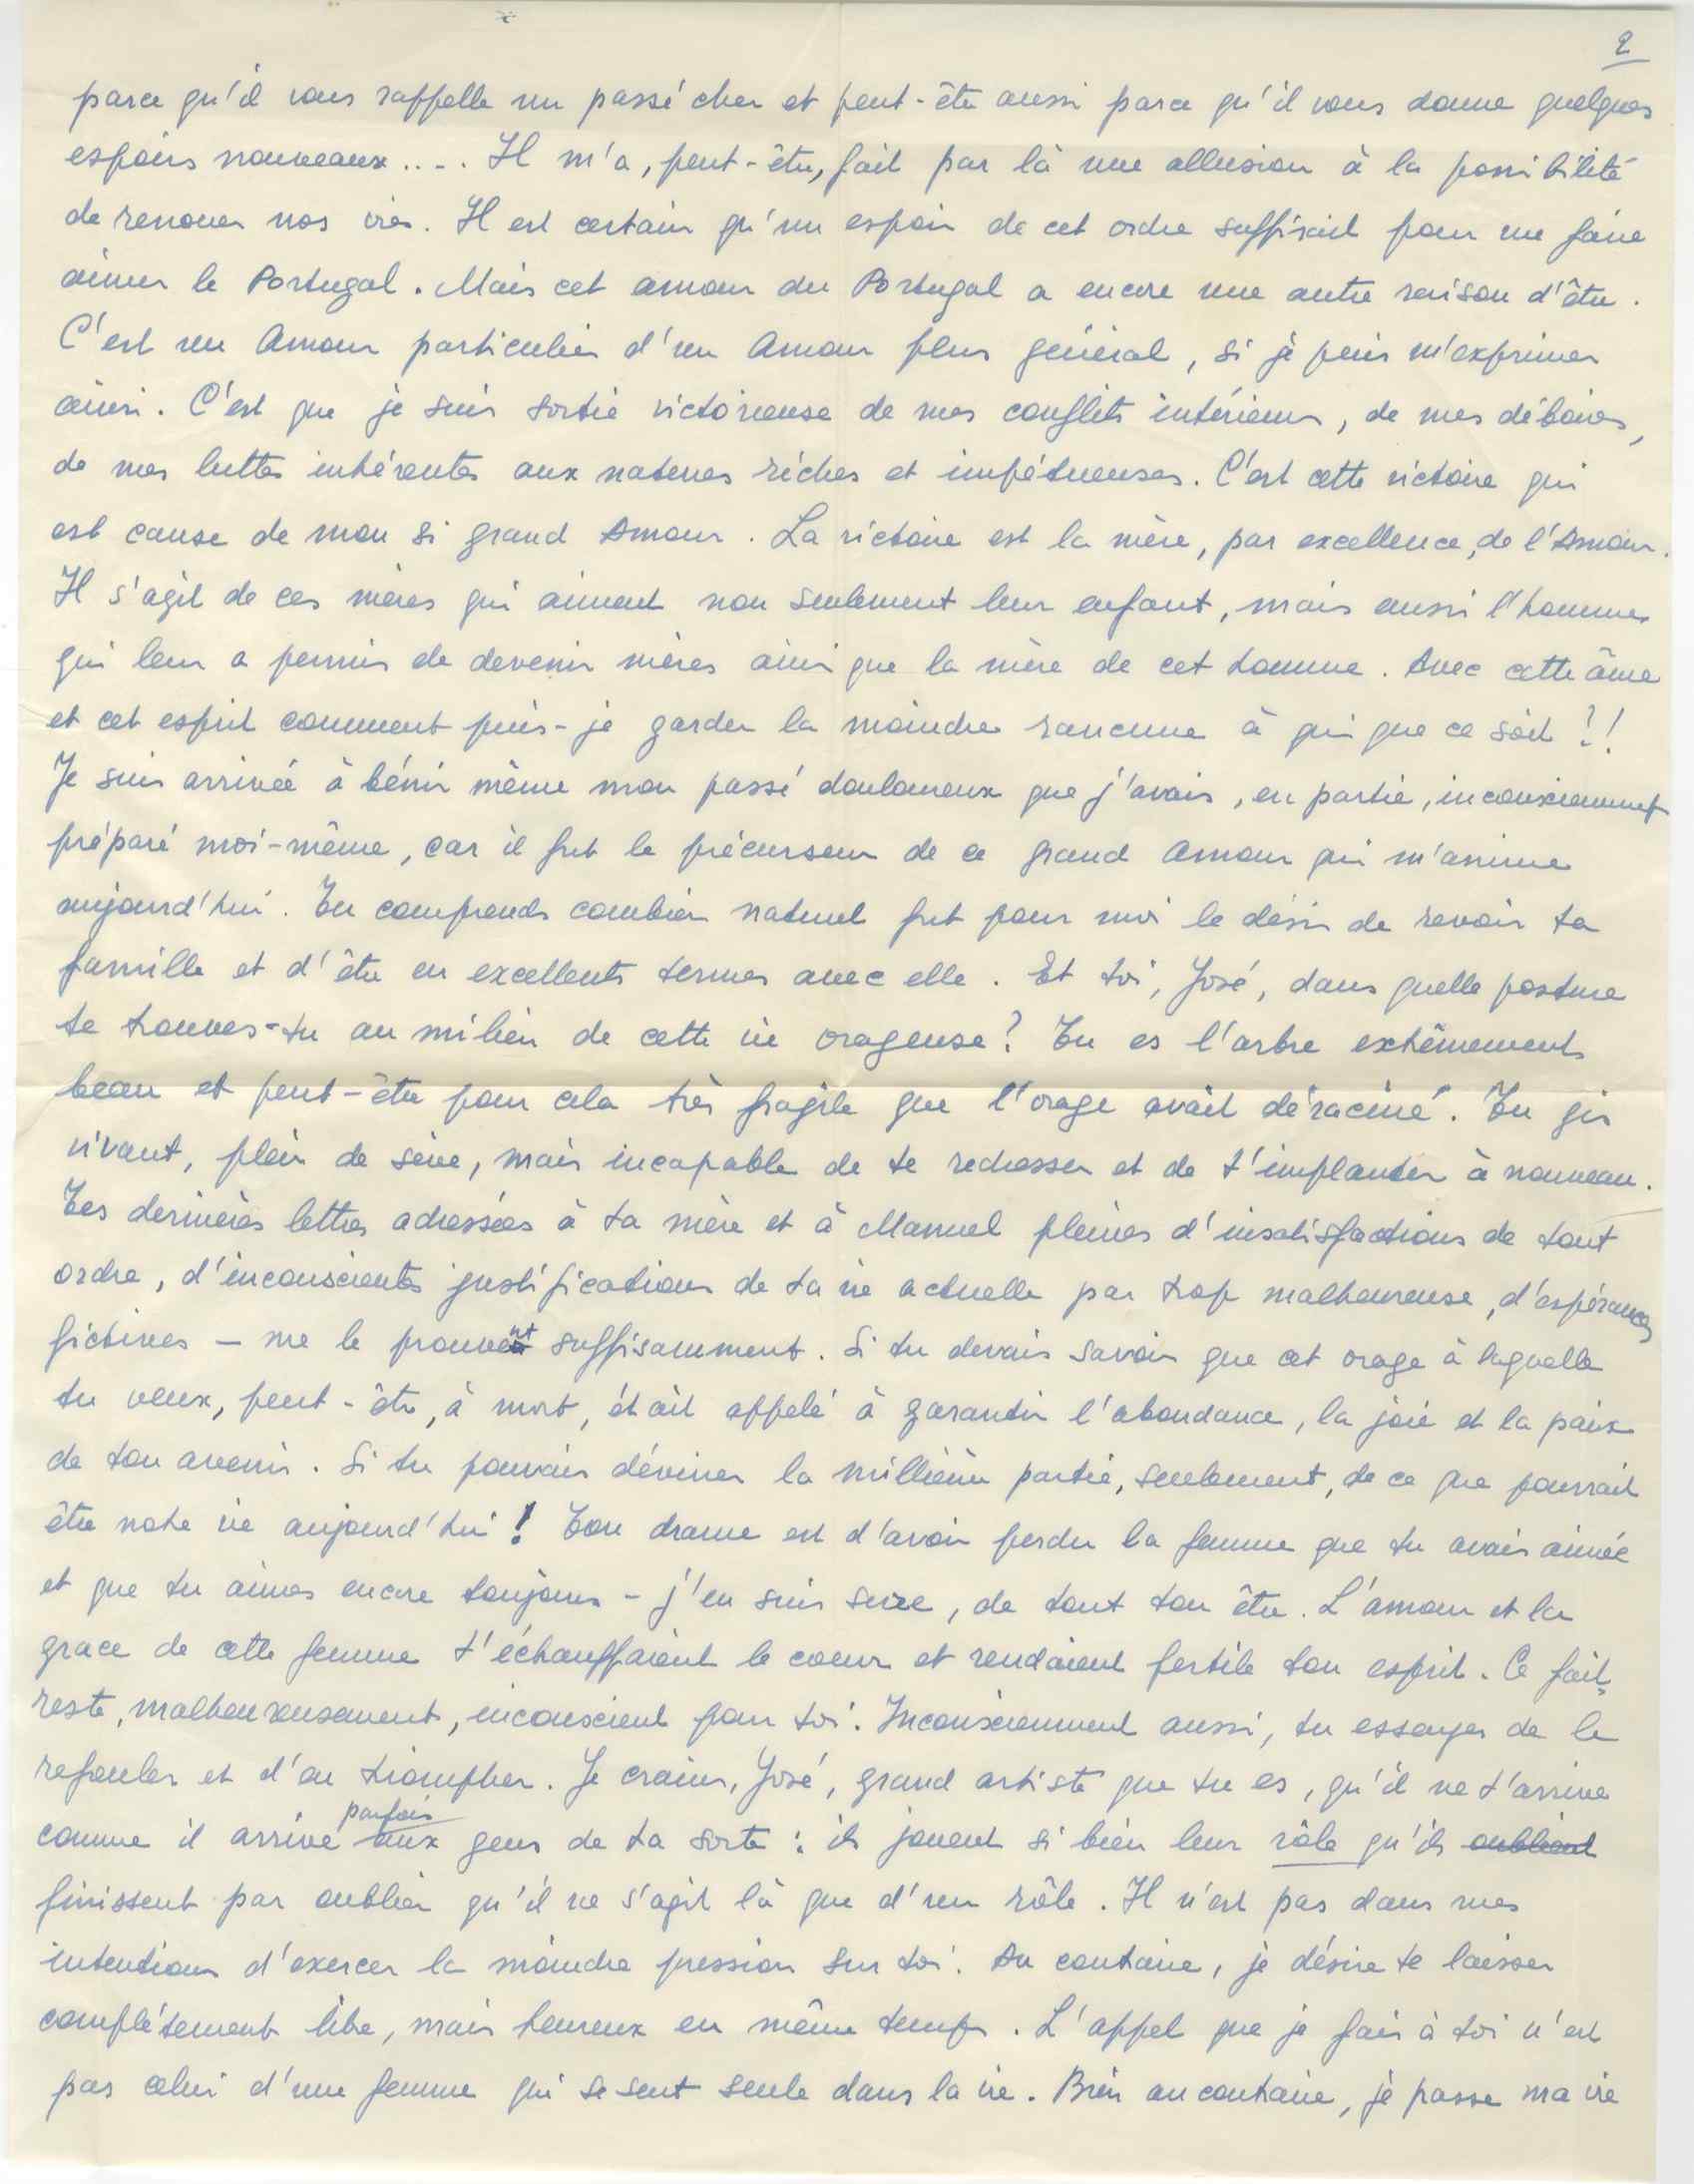 2
parce qu'il vous rappelle un passé cher et peut-être aussi parce qu'il vous donne quelques
espoirs nouveaux.... Il m'a, peut-être, fait par là une allusion à la possibilité
de renouer nos vies. Il est certain qu'un espoir de cet ordre suffirait pour me faire
aimer le Portugal. Mais cet amour du Portugal a encore une autre raison d'être.
C'est un Amour particulier d'un Amour plus général, si je puis m'exprimer
ainsi. C'est que je suis sortie victorieuse de mes conflits intérieurs, de mes déboires,
de mes luttes inhérentes aux natures riches et impétueuses. C'est cette victoire qui
est cause de mon si grand Amour. La victoire est la mère, par excellence, de l'Amour.
Il s'agit de ces mères qui aiment non seulement leur enfant, mais aussi l'homme
qui leur a permis de devenir mères ainsi que la mère de cet homme. Avec cette âme
et cet esprit comment puis-je garder la moindre rancune à qui que ce soit ?!
Je suis arrivée à bénir même mon passé douloureux que j'avais, en partie, inconsciemment
préparé moi-même, car il fut le précurseur de ce grand Amour qui m'anime
aujourd'hui. Tu comprends combien naturel fut pour moi le désir de revoir ta
famille et d'être en excellents termes avec elle. Et toi, José, dans quelle posture
te trouves-tu au milieu de cette vie orageuse? Tu es l'arbre extrêmement
beau et peut-être pour cela très fragile que l'orage avait déraciné. Tu gis
vivant, plein de sève, mais incapable de te redresser et de t'implanter à nouveau.
Tes dernières lettres adressées à ta mère et à Manuel pleines d'insatisfactions de tout
ordre, d'inconscientes justifications de ta vie actuelle par trop malheureuse, d'espérances
fictives – me le prouvent suffisamment. Si tu devais savoir que cet orage à laquelle
tu veux, peut-être, à mort, était appelé à garantir l'abondance, la joie et la paix
de ton avenir. Si tu pouvais deviner la millième partie, seulement, de ce que pourrait
être notre vie aujourd'hui ! Ton drame est d'avoir perdu la femme que tu avais aimée
et que tu aimes encore toujours – j'en suis sure, de tout ton être. L'amour et la
grace de cette femme t'échauffaient le coeur et rendaient fertile ton esprit. Ce fait
reste, malheureusement, inconscient pour toi. Inconsciemment aussi, tu essayes de le
refouler et d'en triompher. Je crains, José, grand artiste que tu es, qu'il ne t'arrive
comme il arrive parfois aux gens de ta sorte : ils jouent si bien leur rôle qu'ils oublient
finissent par oublier qu'il ne s'agit là que d'un rôle. Il n'est pas dans mes
intentions d'exercer la moindre pression sur toi. Au contraire, je désire te laisser
complètement libre, mais heureux en même temps. L'appel que je fais à toi n'est
pas celui d'une femme qui se sent seule dans la vie. Bien au contraire, je passe ma vie